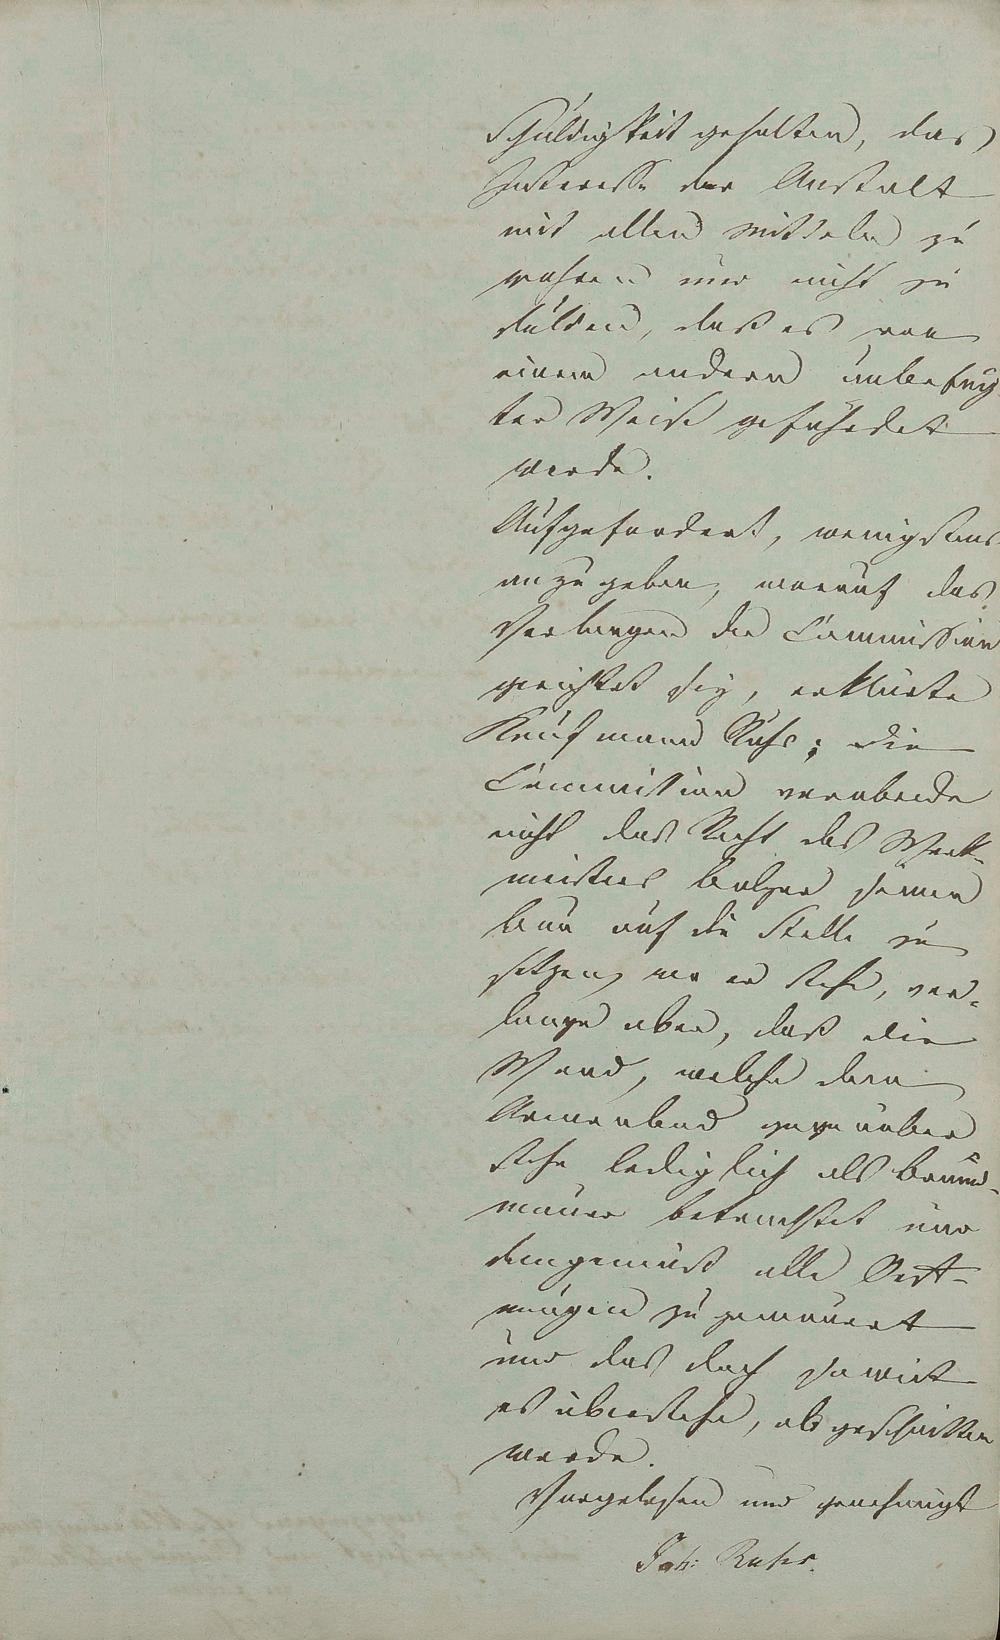 Schuldigkeit gehalten, das
Interesse der Anstalt
mit allen Mitteln zu
wahren und nicht zu
dulden, daß es von
einem andern unbefug
ter Weise gefährdet
werde.
Aufgefordert, wenigstens
anzugeben, worauf das
Verlangen der Commission
gerichtet sey, erklärte
Kaufmann Ruhs; die
Commission verabrede
nicht das Recht des Werk-
meisters Balzer seinen
Bau auf die Stelle zu
setzen, wo er stehe, ver-
lange aber, daß die
Wand, welche dem
Armenbad gegenüber
stehe lediglich als Brand-
mauer betrachtet und
demgemäß alle Oeff-
nungen zugemauert
und das Dach soweit
es überstehe, abgeschnitten
werde.
Vorgelesen und genehmigt
Joh: